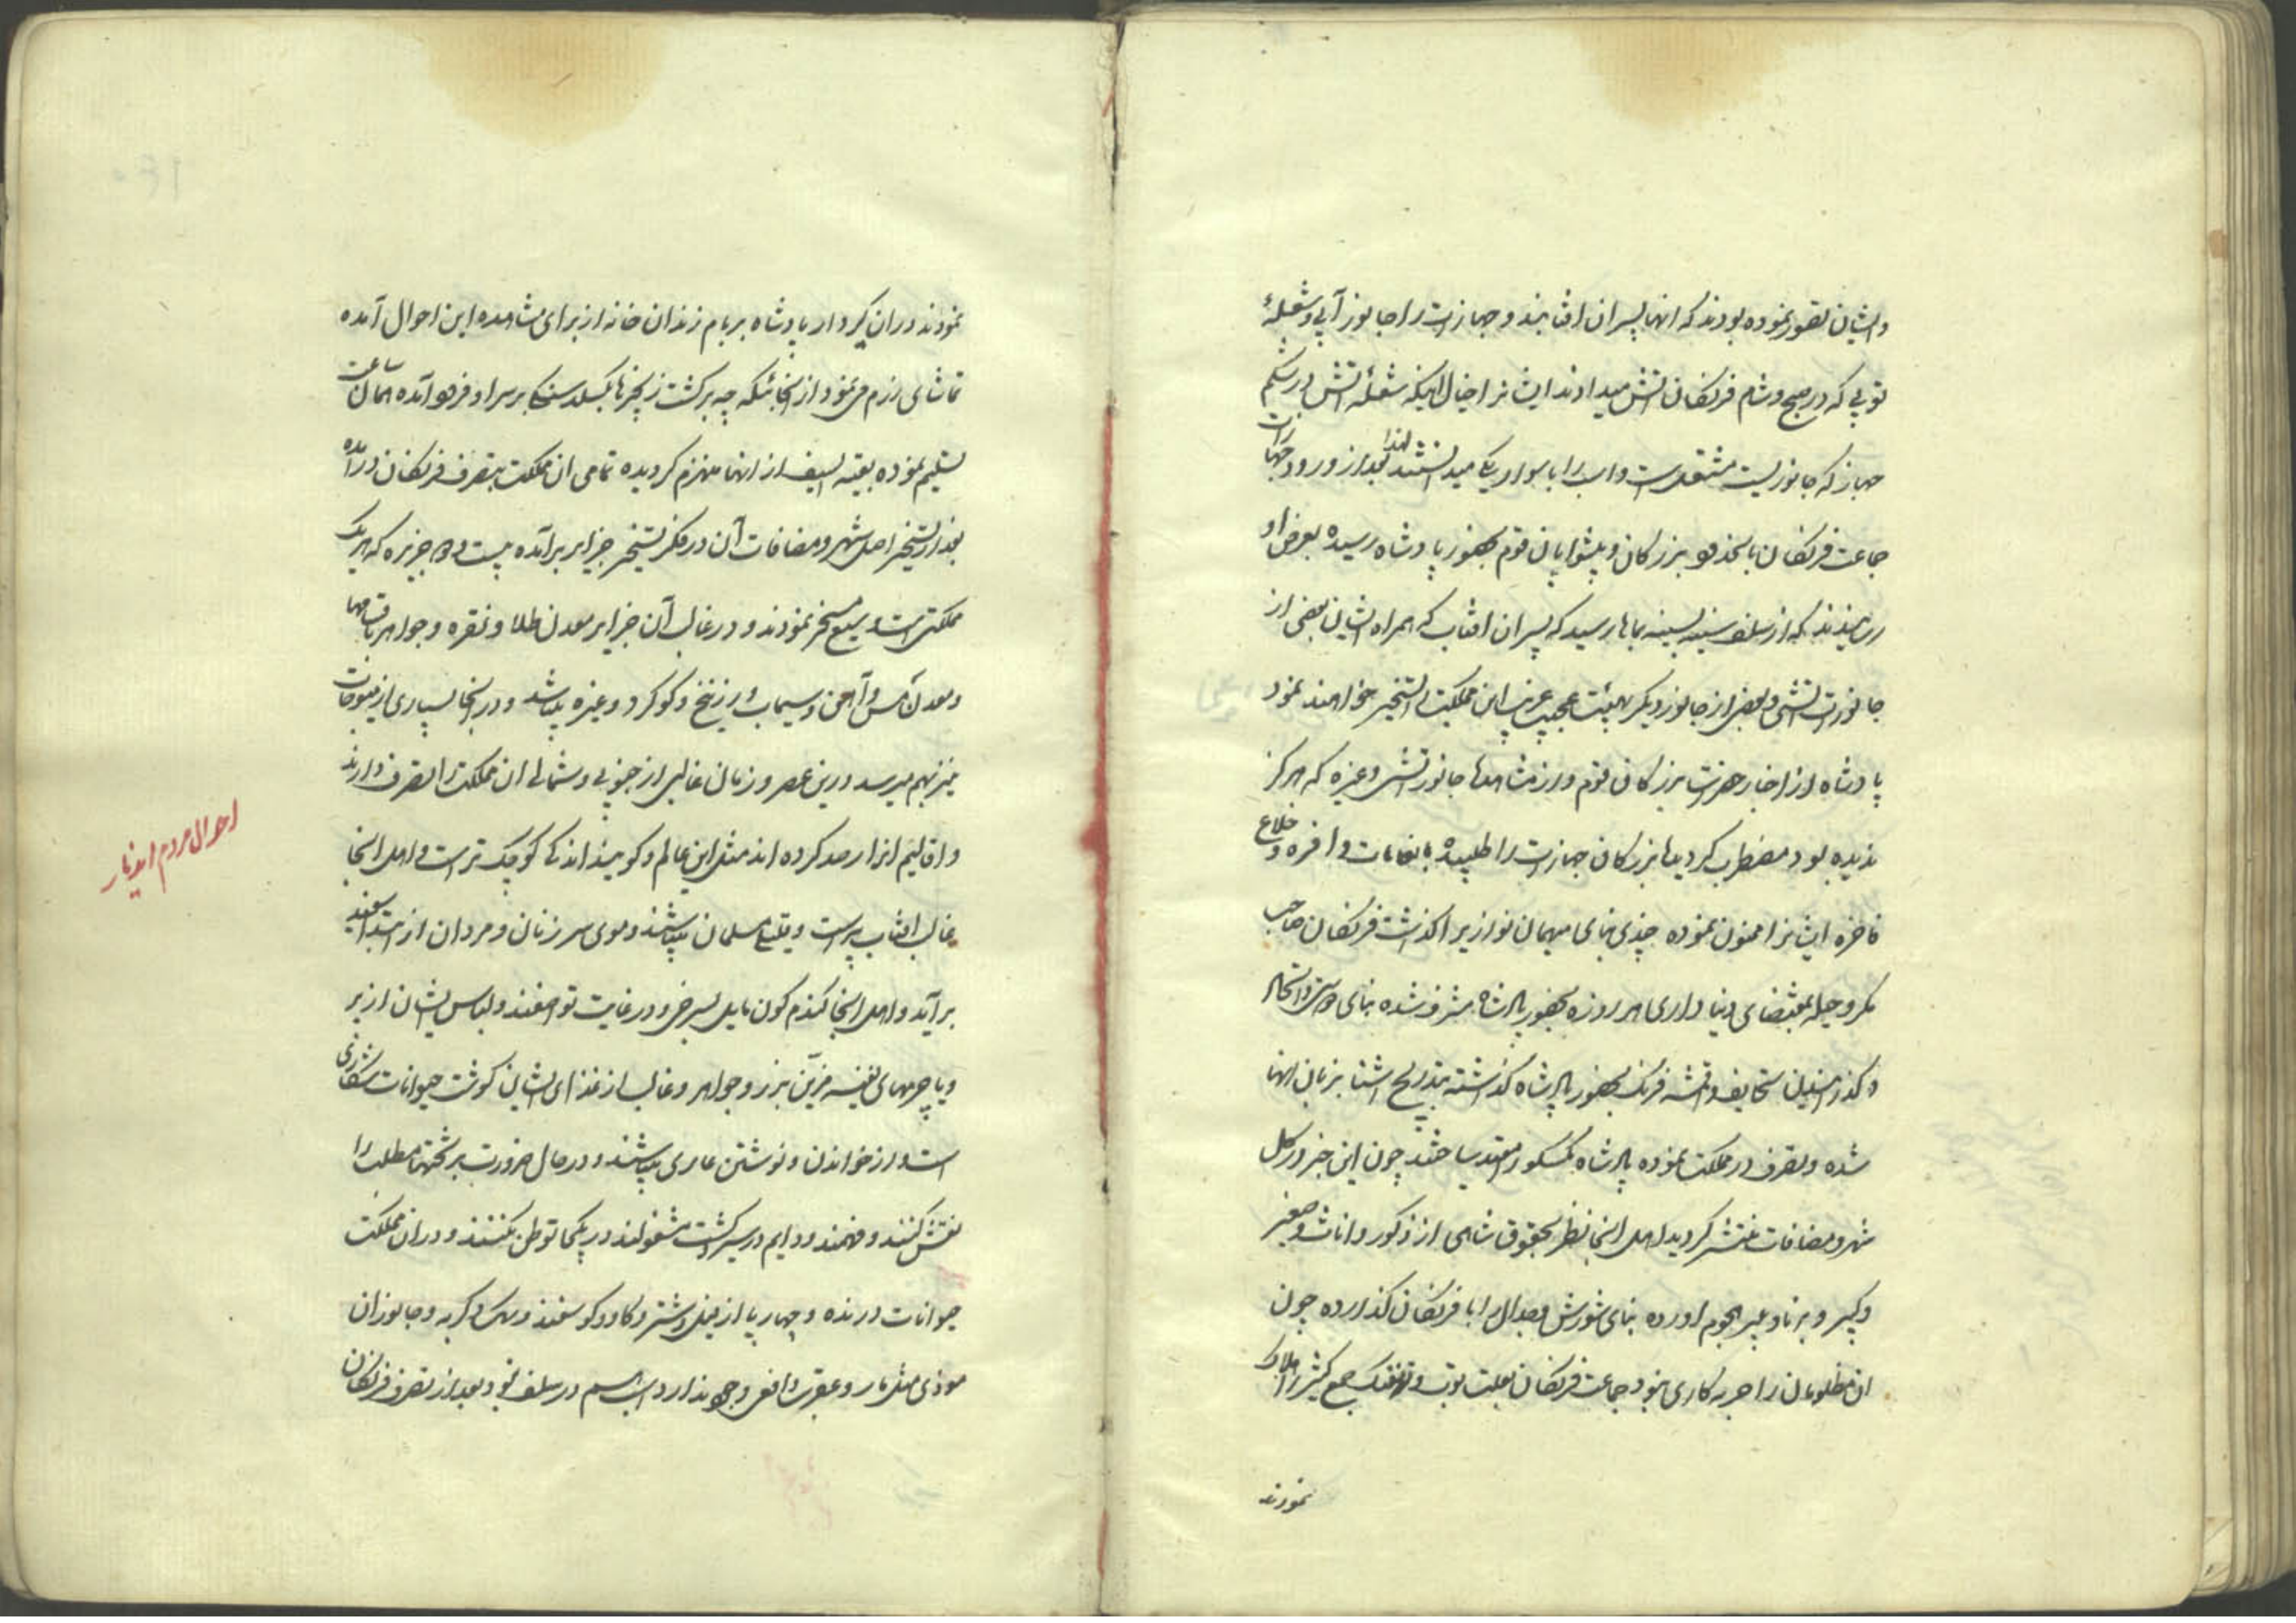 و ایشان تصور نموده بودند که انها پسران افتابند و جهازات را جانور آبی و شعلهٔ
توپی که در صبح و شام فرنکان اتش میدادند ایشانرا خیال اینکه شعله اتش در شکم
جهاز که جانوریست مشتعل است و اسب را با سوار یکی میدانستند لهذا بعد از ورود جهازات
جماعت فرنکان با سخنکو بزرکان و پیشوایان قوم بحضور پادشاه رسیده بعرض او
رسانیدند که از سلف سینه بسینه بماها رسید که پسران افتاب که همراه ایشان بعضی از
جانورت اتشی و بعضی از جانور دیکر بهیئت عجیب غریب این مملکت را تسخیر خواهند نمود
پادشاه از اخبار بزرکان قوم و از مشاهدها جانور اتشی و غیره که هرکز
ندیده بود مضطرب کردیدها بزرکان جهازت را طلبیده بانعامات وافره و خلاع
فاخره ایشانرا ممنون نموده چندی بنای میهمان نوازیرا کذاشت فرنکان صاحب
مکر و حیله بمقتضای دنیا داری هر روزه بحضور پادشاه مشرف شده بنای
و کذرانیدن تحایف و اقمشه فرنک بحضور پادشاه کذاشته بتدریج اشنا بزبان انها
شده و تصرف در مملکت نموده پادشاه مقید ساختند چون این خبر در کل
شهر و مضافات منتشر کردید اهل انجا نظر بحقوق شاهی از ذکور و اناث و صغیر
و کبیر و برنا و پیر هجوم اورده بنای شورش و جدال را با فرنکان کذارده چون
ان مظلومان را حربه کاری نبود جماعت فرنکان بعلت توپ و تفنک جمع کثیر را هلاک
نمودند
نمودند در ان کیرودار پادشاه بر بام زندان خانه از برای مشاهده این احوال آمده
تماشای رزم می نمود از انجائیکه چه برکشت زنجیرها بکسلد سنکی بر سر او فرود آمده همان ساعت
تسلیم نموده بقیه السیف از انها منهزم کردیده تمامی ان مملکت بتصرف فرنکان درآمده
بعد از تسخیر اصل شهر و مضافات آن در فکر تسخیر جزایر برآمده بیست و جزیره که هریک
مملکتی است وسیع مسخر نمودند و در غالب آن جزایر معدن طلا و نقره و جواهر
و معدن مس و آهن و سیماب و زرنیخ و کوکرد و غیره میباشد و در انجا بسیاری از میوجات
نیز بهم میرسد درین عصر و زمان غالبی از جنوبی و شمالی ان مملکت را تصرف دارند
و اقالیم انرا رصد کرده اند مثل این عالم و کویند اندکی کوچک تر است و اهل انجا
غالب افتاب پرست و قلیلی مسلمان میباشند و موی سر زنان و مردان از ابتدا سفید
برآید و اهل انجا کندم کون مایل بسرخی و در غایت تواضعند و لباس ایشان از پر
و یا چرمهای نفیسه مزین بزر و جواهر و غالب از غذای ایشان کوشت حیوانات شکاری
است و از خواندن و نوشتن عاری میباشند و در حال ضرورت بر تختها مطلب را
نقش کنند و فهمند و دایم در سیر و کشت مشغولند در یکجا توطن نکنند و در ان مملکت
حیوانات درنده و چهارپا از فیل و شتر و کاو و کوسفند و سک و کربه و جانوران
موذی مثل مار و عقرب و افعی وجود ندارد و اسب هم در سلف نبود بعد از تصرف فرنکان
احوال مردم